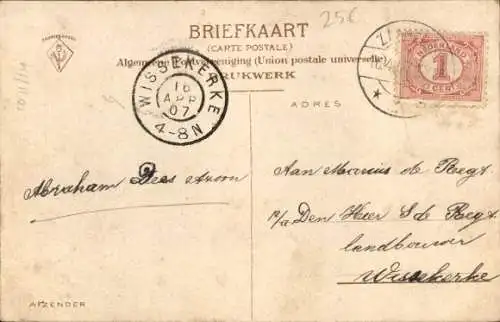 25€
BRIEFKAART
(CARTE POSTALE)
Algemeene Postvereeniging (Union postale universelle)
DRUKWERK
WISSEKERKE
16
APR
07
4-8N
NEDERLAND
1
CENT
ADRES
Abraham Dees
Aan Marinus de Regt
p/a Den Heer S de Regt
landbouwer
Wissekerke
AFZENDER